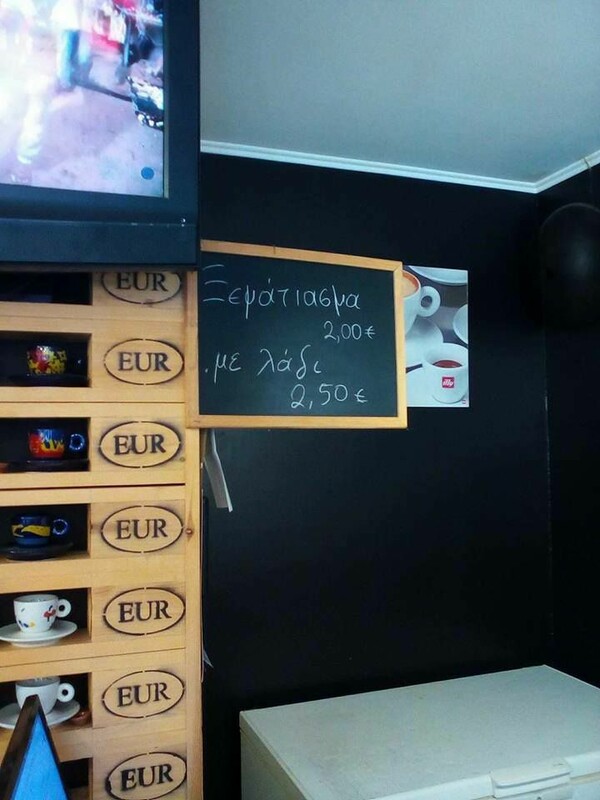 Ξεμάτιασμα
2,00 €
.με λάδι
2,50 €
illy
EUR
EUR
EUR
EUR
EUR
EUR
EUR